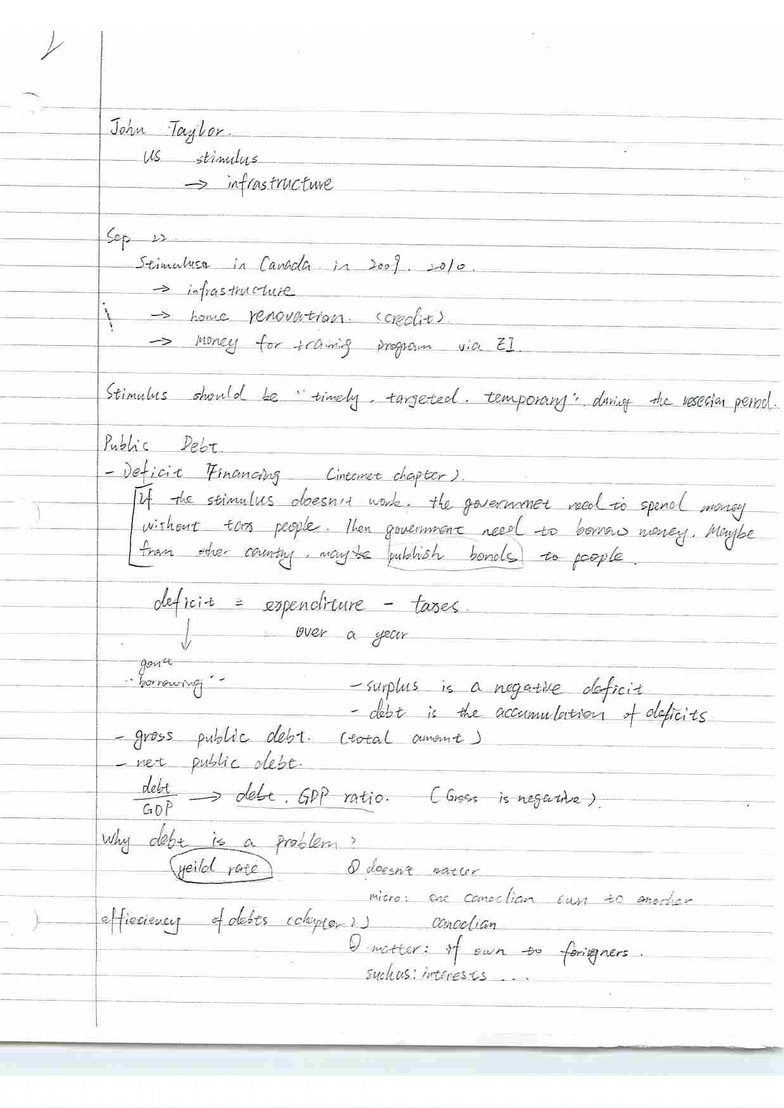 John Taylor.
US stimulus
→ infrastructure
Sep 22.
Stimuluse in Canada in 2009. 2010.
→ infrastructure
→ home renovation. (credit).
→ Money for training program via EI.
Stimulus should be "timely, targeted, temporary". during the period.
Public Debt.
- Deficit Financing (internet chapter).
If the stimulus doesn't work. the governmet need to spend money
without taxs people. Then government need to borrow money. Maybe
from other country, maybe publish bonds to people.
deficit = expenditure - taxes.
over a year
"borrowing"
- surplus is a negative deficit
- debt is the accumulation of deficits
- gross public debt. (total amount)
- net public debt.
debt
GDP → debt. GDP ratio. (Gross is negative).
Why debt is a problem?
yeild rate ① doesn't matter
micro: one canadian own to another
effieciency of debts (chapter 2) canadian
② matter: if own to foriegners.
such as: interests ...